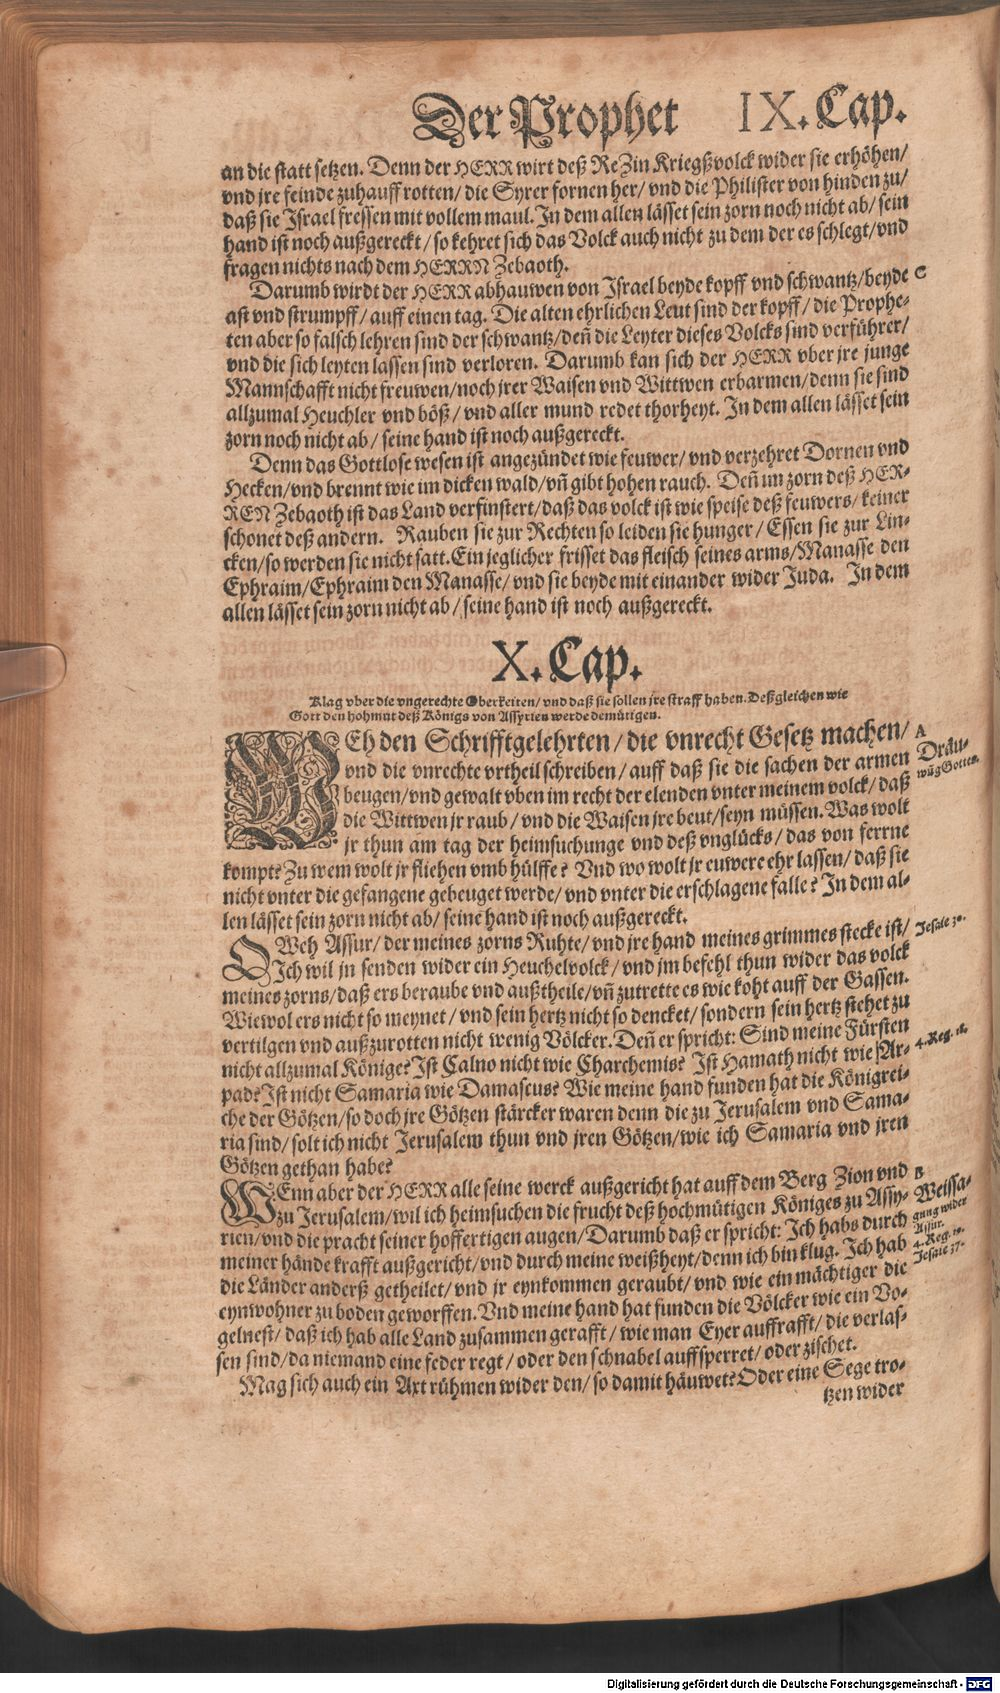 Der Prophet IX. Cap.
an die statt setzen. Denn der HERR wirt deß ReZin Kriegßvolck wider sie erhöhen/
vnd jre feinde zuhauff rotten/ die Syrer fornen her/ vnd die Philister von hinden zu/
daß sie Israel fressen mit vollem maul. In dem allen lässet sein zorn noch nicht ab/ sein
hand ist noch außgereckt/ so kehret sich das Volck auch nicht zu dem der es schlegt/ vnd
fragen nichts nach dem HERRN Zebaoth.
Darumb wirdt der HERR abhauwen von Israel beyde kopff vnd schwantz/ beyde C
ast vnd strumpff/ auff einen tag. Die alten ehrlichen Leut sind der kopff/ die Prophe-
ten aber so falsch lehren sind der schwantz/ deñ die Leyter dieses Volcks sind verführer/
vnd die sich leyten lassen sind verloren. Darumb kan sich der HERR vber jre junge
Mannschafft nicht freuwen/ noch jrer Waisen vnd Wittwen erbarmen/ denn sie sind
allzumal Heuchler vnd böß/ vnd aller mund redet thorheyt. In dem allen lässet sein
zorn noch nicht ab/ seine hand ist noch außgereckt.
Denn das Gottlose wesen ist angezündet wie feuwer/ vnd verzehret Dornen vnd
Hecken/ vnd brennt wie im dicken wald/ vñ gibt hohen rauch. Deñ im zorn deß HER-
REN Zebaoth ist das Land verfinstert/ daß das volck ist wie speise deß feuwers/ keiner
schonet deß andern. Rauben sie zur Rechten so leiden sie hunger/ Essen sie zur Lin-
cken/ so werden sie nicht satt. Ein jeglicher frisset das fleisch seines arms/ Manasse den
Ephraim/ Ephraim den Manasse/ vnd sie beyde mit einander wider Juda. In dem
allen lässet sein zorn nicht ab/ seine hand ist noch außgereckt.
X. Cap.
Klag vber die vngerechte Oberkeiten/ vnd daß sie sollen jre straff haben. Deßgleichen wie
Gott den hohmut deß Königs von Assyrien werde demütigen.
WEh den Schrifftgelehrten/ die vnrecht Gesetz machen/ A
vnd die vnrechte vrtheil schreiben/ auff daß sie die sachen der armen Dräu-
beugen/ vnd gewalt vben im recht der elenden vnter meinem volck/ daß wũg Gottes.
die Wittwen jr raub/ vnd die Waisen jre beut/ seyn müssen. Was wolt
jr thun am tag der heimsuchunge vnd deß vnglücks/ das von ferrne
kompt? Zu wem wolt jr fliehen vmb hülffe? Vnd wo wolt jr euwere ehr lassen/ daß sie
nicht vnter die gefangene gebeuget werde/ vnd vnter die erschlagene falle? In dem al-
len lässet sein zorn nicht ab/ seine hand ist noch außgereckt.
O Weh Assur/ der meines zorns Ruhte/ vnd jre hand meines grimmes stecke ist/ Jesaie 30.
Ich wil jn senden wider ein Heuchelvolck/ vnd jm befehl thun wider das volck
meines zorns/ daß ers beraube vnd außtheile/ vñ zutrette es wie koht auff der Gassen.
Wiewol ers nicht so meynet/ vnd sein hertz nicht so dencket/ sondern sein hertz stehet zu
vertilgen vnd außzurotten nicht wenig Völcker. Deñ er spricht: Sind meine Fürsten
nicht allzumal Könige? Ist Calno nicht wie Charchemis? Ist Hamath nicht wie Ar- 4. Reg. 18.
pad? Ist nicht Samaria wie Damascus? Wie meine hand funden hat die Königrei-
che der Götzen/ so doch jre Götzen stärcker waren denn die zu Jerusalem vnd Sama-
ria sind/ solt ich nicht Jerusalem thun vnd jren Götzen/ wie ich Samaria vnd jren
Götzen gethan habe?
WEnn aber der HERR alle seine werck außgericht hat auff dem Berg Zion vnd B
zu Jerusalem/ wil ich heimsuchen die frucht deß hochmütigen Königes zu Assy- Weissa-
rien/ vnd die pracht seiner hoffertigen augen/ Darumb daß er spricht: Ich habs durch gung wider
Assur.
meiner hände krafft außgericht/ vnd durch meine weißheyt/ denn ich bin klug. Ich hab 4. Reg. 19.
Jesaie 37.
die Länder anderß getheilet/ vnd jr eynkommen geraubt/ vnd wie ein mächtiger die
eynwohner zu boden geworffen. Vnd meine hand hat funden die Völcker wie ein Vo-
gelnest/ daß ich hab alle Land zusammen gerafft/ wie man Eyer auffrafft/ die verlas-
sen sind/ da niemand eine feder regt/ oder den schnabel auffsperret/ oder zischet.
Mag sich auch ein Axt rühmen wider den/ so damit häuwet? Oder eine Sege tro-
tzen wider
Digitalisierung gefördert durch die Deutsche Forschungsgemeinschaft - DFG